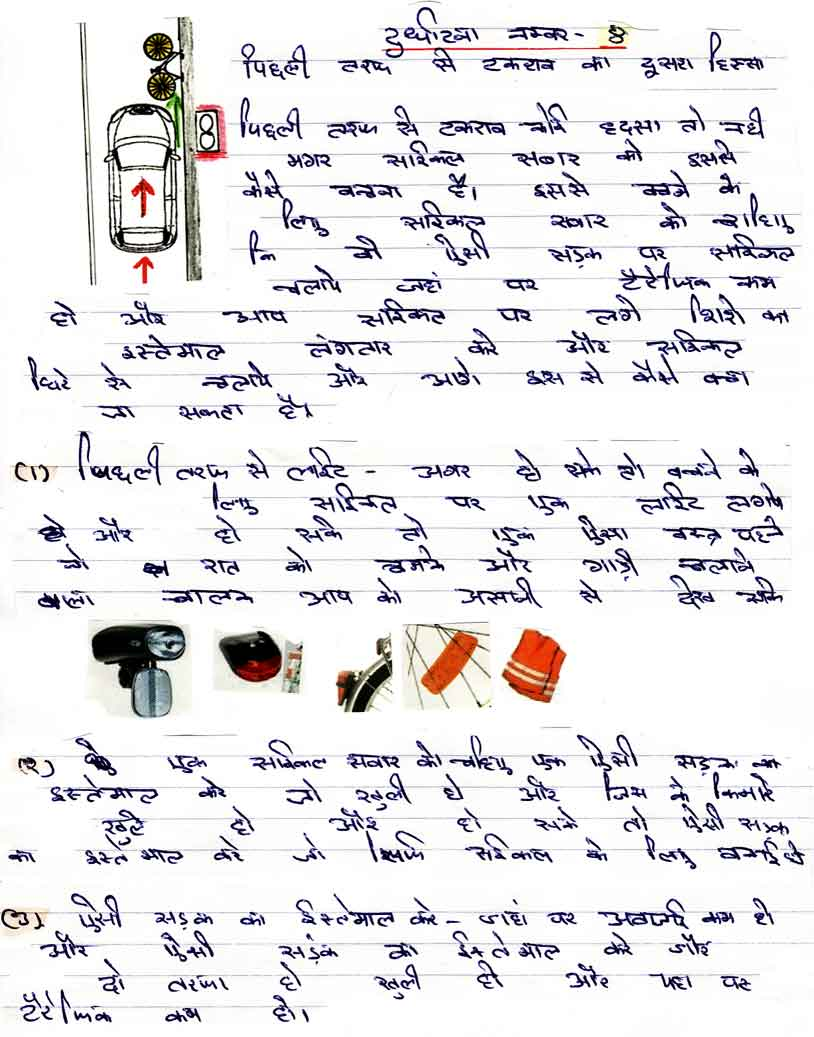 दुर्घटना नम्बर- 8
पिछली तरफ से टकराव का दूसरा हिस्सा
8
पिछली तरफ से टकराव कोई हदसा तो नही
मगर साईकल सवार को इससे
कैसे बचना है। इससे बचने के
लिए साईकल सवार को चाहिए
कि वो ऐसी सड़क पर साईकल
चलाये जहां पर टैरेफिक कम
हो और आप साईकल पर लगे शिशे का
इस्तेमाल लगातार करे और साईकल
धिरे से चलाये और आगे इस से कैसे बचा
जा सकता है।
(1) पिछली तरफ से लाईट - अगर हो सके तो बचने के
लिए साईकल पर एक लाईट लगाये
और हो सके तो एक ऐसा वस्त्र पहने
जो रात को चमके और गाड़ी चलाने
वाला चालक आप को असानी से देख सके
(2) एक साईकल सवार को चाहिए एक ऐसी सड़क का
इस्तेमाल करे जो खुली हो और जिस के किनारे
खुले हो और हो सके तो ऐसी सड़क
का इस्तेमाल करे जो सिर्फ साईकल के लिए बनाई हो
(3) ऐसी सड़क का ईस्तेमाल करे - जहां पर अवाजाई कम हो
और ऐसी सड़क का ईस्तेमाल करे जोह
दो तरफा हो खुली हो और यहा पर
टैरेफिक कम हो।